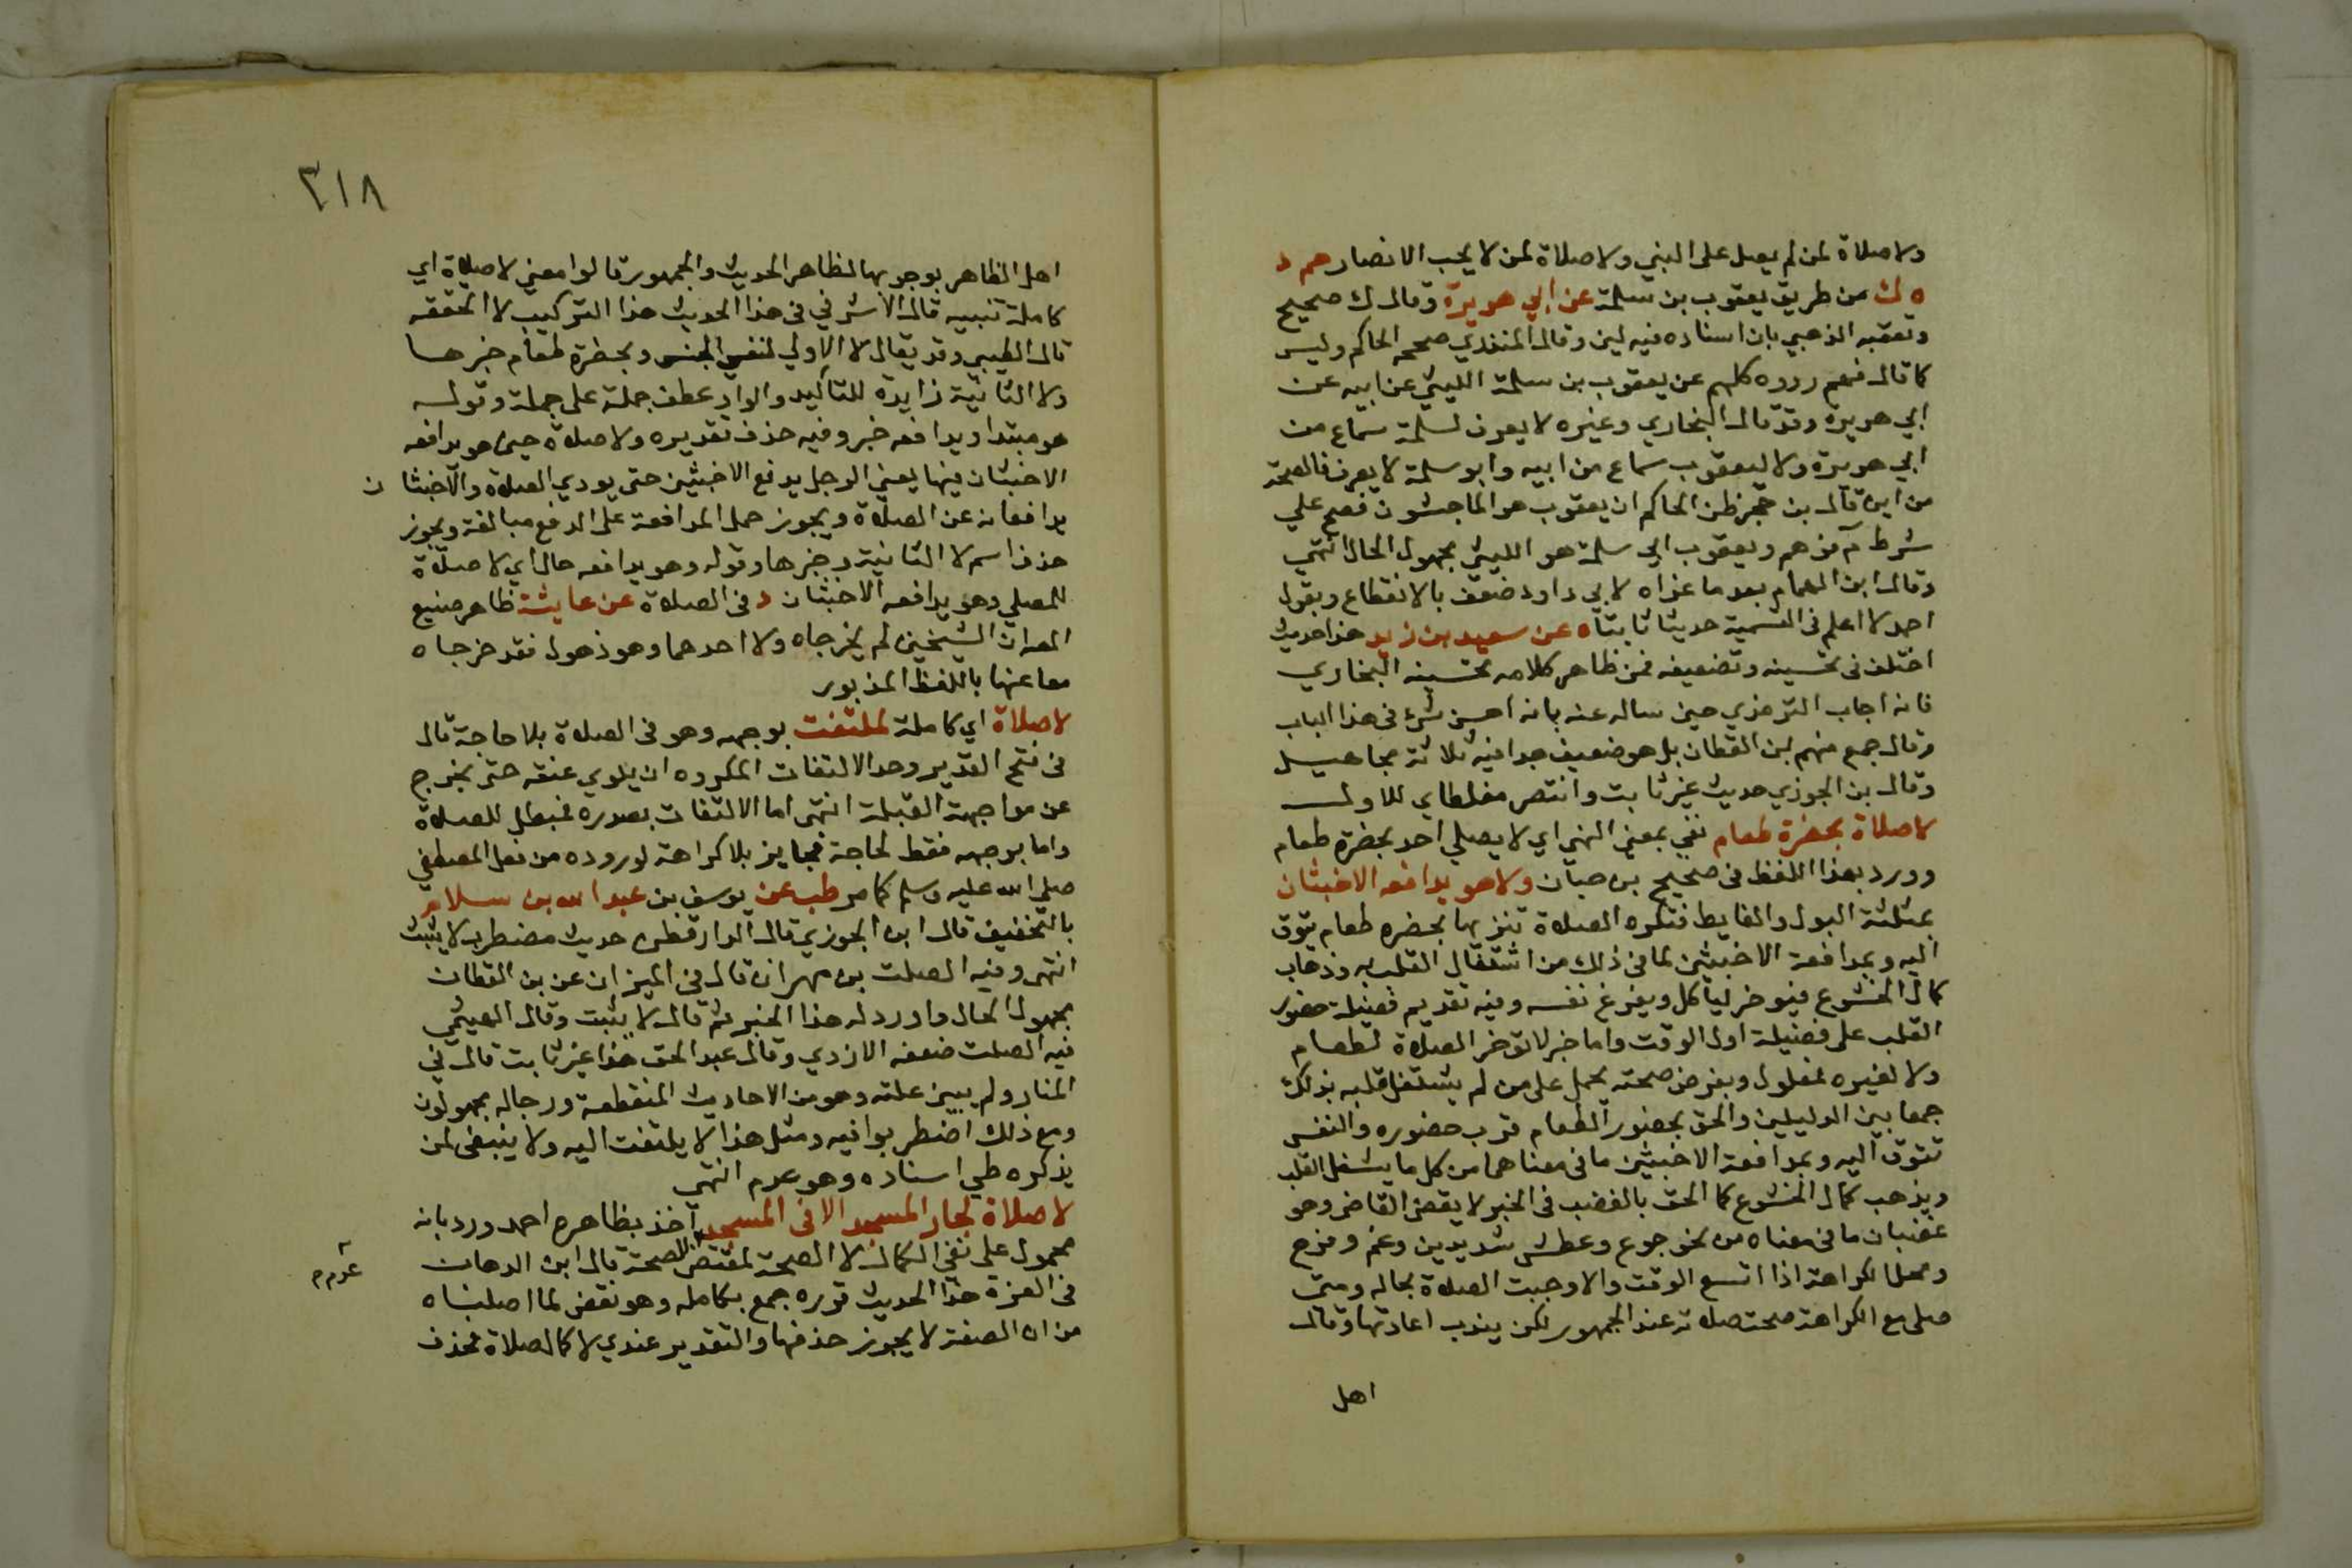 ولاصلاة لمن لم يصل على النبي ولاصلاة لمن لا يحب الانصار حم د
ه ك من طريق يعقوب بن سلمة عن ابي هريرة وقال ك صحيح
وتعقبه الذهبي بان اسناده فيه لين وقال المنذري صححه الحاكم وليس
كما قال فهم رووه كلهم عن يعقوب بن سلمة الليثي عن ابيه عن
ابي هريرة وقد قال البخاري وغيره لا يعرف لسلمة سماع من
ابي هريرة ولا ليعقوب سماع من ابيه وابو سلمة لا يعرف فالصحة
من اين قال بن حجر ظن الحاكم ان يعقوب هو الماجشون فصح علي
شرط م فوهم ويعقوب ابي سلمة هو الليثي مجهول الحال انتهى
وقال ابن الهمام بعد ما عزاه لابي داود ضعف بالانقطاع وبقول
احمد لا اعلم في التسمية حديثا ثابتا ه عن سعيد بن زيد هذا حديث
اختلف في تحسينه وتضعيفه فمن ظاهر كلامه تحسينه البخاري
فانه اجاب الترمذي حين ساله عنه بانه احسن شئ في هذا الباب
وقال جمع منهم ابن القطان بل هو ضعيف جدا فيه ثلاثة مجاهيل
وقال بن الجوزي حديث غير ثابت وانتصر مغلطاي للاول
لاصلاة بحضرة طعام نفي بمعنى النهي اي لا يصلي احد بحضرة طعام
وورد بهذا اللفظ في صحيح بن حبان ولا هو يدافعه الاخبثان
بمثلثة البول والغايط فتكره الصلاة تنزيها بحضرة طعام يتوق
اليه وبمدافعة الاخبثين لما في ذلك من اشتغال القلب به وذهاب
كمال الخشوع فيوخر لياكل ويفرغ نفسه وفيه تقديم فضيلة حضور
القلب على فضيلة اول الوقت واما خبر لا توخر الصلاة لطعام
ولا لغيره فمعلول وبفرض صحته يحمل على من لم يشتغل قلبه بذلك
جمعا بين الدليلين والحق بحضور الطعام قرب حضوره والنفس
تتوق اليه وبمدافعة الاخبثين ما في معناهما من كل ما يشغل القلب
ويذهب كمال الخشوع كما الحق بالغضب في الخبر لا يقضي القاضي وهو
غضبان ما في معناه من نحو جوع وعطش شديدين وغم وفرح
ومحل الكراهة اذا اتسع الوقت والا وجبت الصلاة بحاله ومتى
صلى مع الكراهة صحت صلاته عند الجمهور لكن يندب اعادتها وقال
اهل
٣١٨
اهل الظاهر بوجوبها لظاهر الحديث والجمهور قالوا معنى لاصلاة اي
كاملة تنبيه قال الاشرفي في هذا الحديث هذا التركيب لا احققه
قال الطيبي وقد يقال لا الاولي لنفي الجنس وبحضرة طعام خبرها
ولا الثانية زايدة للتاكيد والواو عطف جملة على جملة وقوله
هو مبتدا ويدافعه خبر وفيه حذف تقديره ولاصلاة حين هو يدافعه
الاخبثان فيها يعني الرجل يدفع الاخبثين حتى يودي الصلاة والاخبثان
يدافعانه عن الصلاة ويجوز حمل المدافعة على الدفع مبالغة ويجوز
حذف اسم لا الثانية وخبرها وقوله وهو يدافعه حال اي لاصلاة
للمصلي وهو يدافعه الاخبثان د في الصلاة عن عايشة ظاهر صنيع
المص ان الشيخين لم يخرجاه ولا احدهما وهو ذهول فقد خرجاه
معا عنها باللفظ المزبور
لاصلاة اي كاملة لملتفت بوجهه وهو في الصلاة بلا حاجة قال
في فتح القدير وحد الالتفات المكروه ان يلوي عنقه حتى يخرج
عن مواجهة القبلة انتهى اما الالتفات بصدره فمبطل للصلاة
واما بوجهه فقط لحاجة فجايز بلا كراهة لوروده من فعل المصطفي
صلى الله عليه وسلم كما مر طب عن يوسف بن عبد الله بن سلام
بالتخفيف قال ابن الجوزي قال الدارقطني حديث مضطرب لا يثبت
انتهى وفيه الصلت بن مهران قال في الميزان عن بن القطان
مجهول الحال واورد له هذا الخبر ثم قال لا يثبت وقال الهيثمي
فيه الصلت ضعفه الازدي وقال عبد الحق هذا غير ثابت قال في
المنار ولم يبين علته وهو من الاحاديث المنقطعة ورجاله مجهولون
ومع ذلك اضطربوا فيه ومثل هذا لا يلتفت اليه ولا ينبغي لمن
يذكره طي اسناده وهو عدم انتهى
لاصلاة لجار المسجد الا في المسجد اخذ بظاهره احمد ورد بانه
محمول على نفي الكمال لا الصحة لمقتضى الصحة قال ابن الدهان
في الغرة هذا الحديث قرره جمع بكامله وهو نقض لما اصلناه
من ان الصفة لا يجوز حذفها والتقدير عندي لا كمال صلاة فحذف